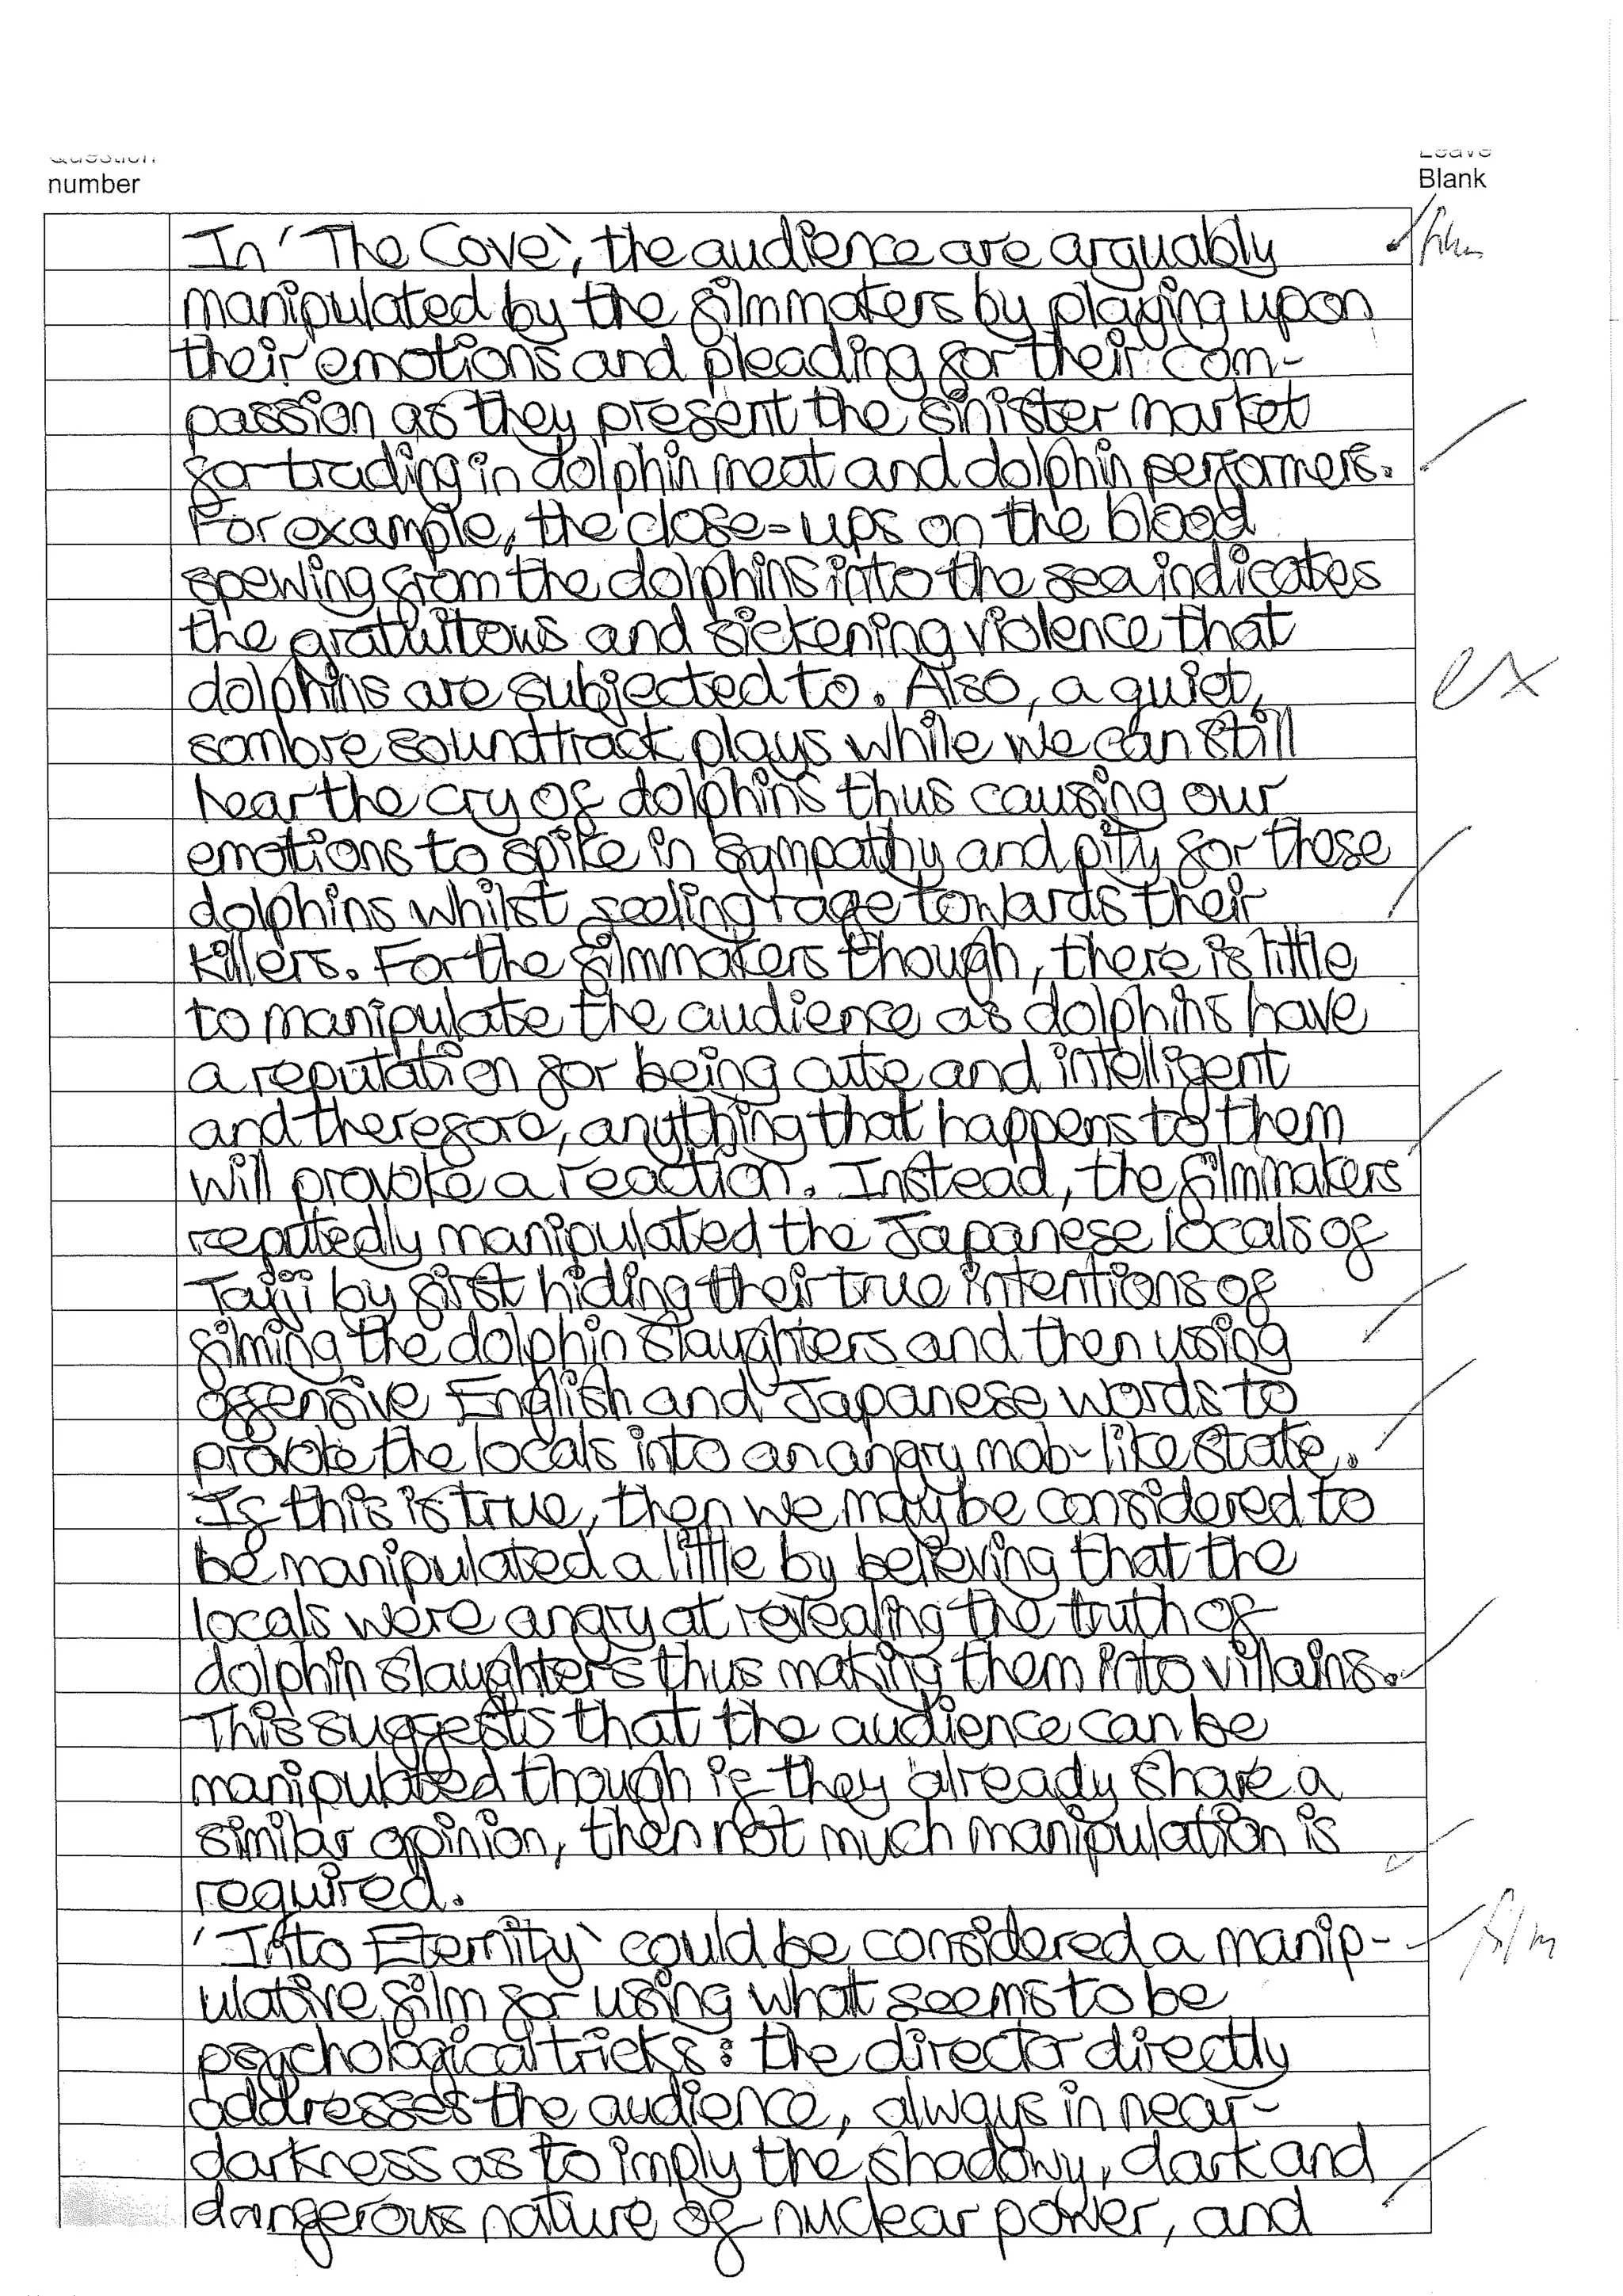 Question
number
Leave
Blank
In 'The Cove', the audience are arguably
film
manipulated by the filmmakers by playing upon
their emotions and pleading for their com-
passion as they present the sinister market
for trading in dolphin meat and dolphin performers.
For example, the close-ups on the blood
spewing from the dolphins into the sea indicates
the gratuitous and sickening violence that
dolphins are subjected to. Also, a quiet,
ex
sombre soundtrack plays while we can still
hear the cry of dolphins thus causing our
emotions to spike in sympathy and pity for these
dolphins whilst seeling rage towards their
killers. For the filmmakers though, there is little
to manipulate the audience as dolphins have
a reputation for being cute and intelligent
and therefore, anything that happens to them
will provoke a reaction. Instead, the filmmakers
reputedly manipulated the Japanese locals of
Taiji by first hiding their true intentions of
filming the dolphin slaughters and then using
offensive English and Japanese words to
provoke the locals into an angry mob-like state.
If this is true, then we may be considered to
be manipulated a little by believing that the
locals were angry at revealing the truth of
dolphin slaughters thus making them into villains.
This suggests that the audience can be
manipulated though if they already share a
similar opinion, then not much manipulation is
required.
'Into Eternity' could be considered a manip-
film
ulative film for using what seems to be
psychological tricks: the director directly
addresses the audience, always in near-
darkness as to imply the shadowy, dark and
dangerous nature of nuclear power, and